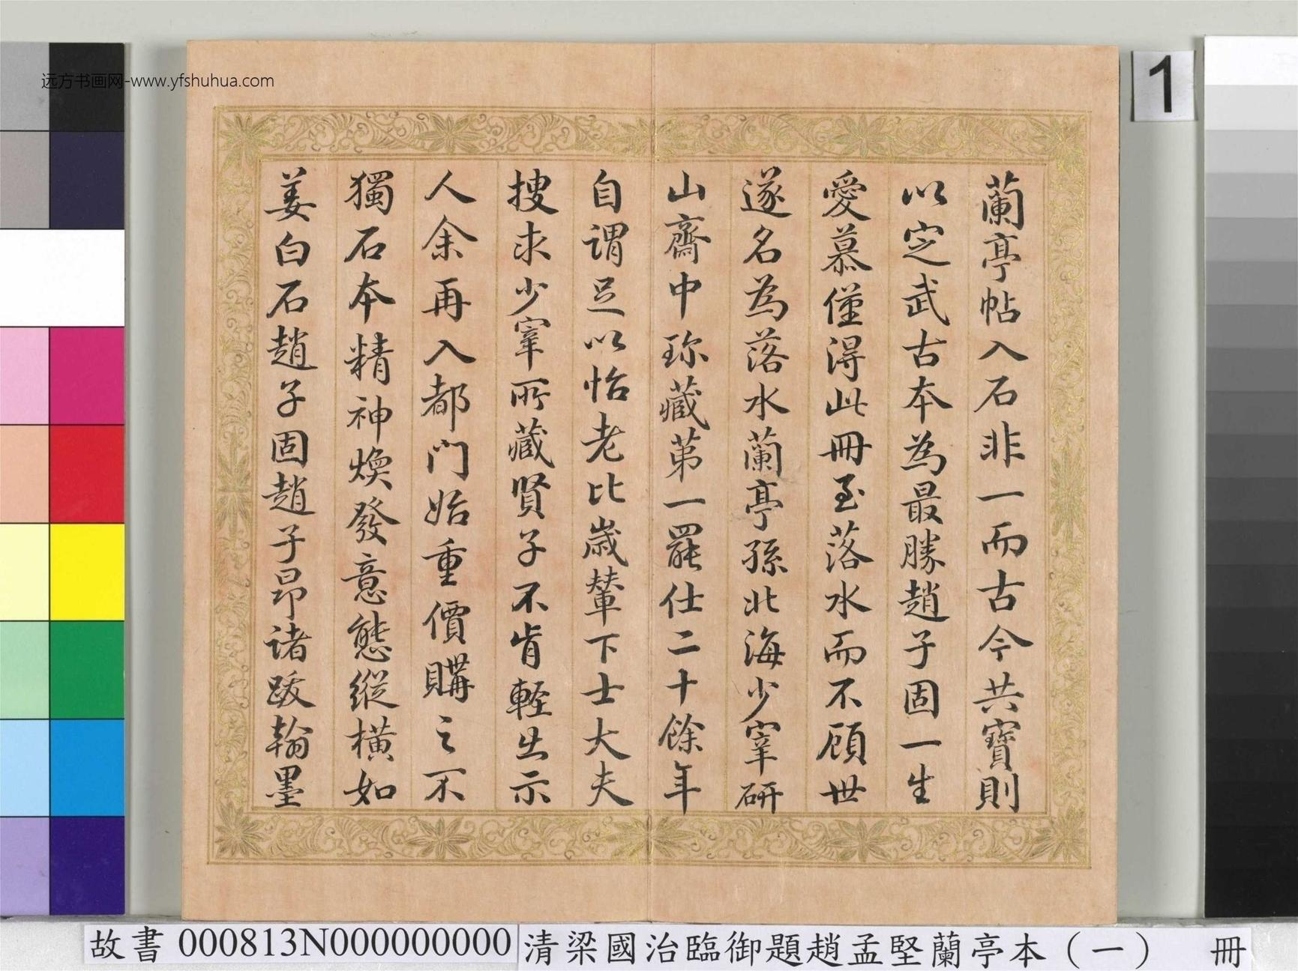 远方书画网-www.yfshuhua.com
1
蘭亭帖入石非一而古今共寶則
以定武古本為最勝趙子固一生
愛慕僅得此冊至落水而不顧世
遂名為落水蘭亭孫北海少宰研
山齋中珎藏苐一罷仕二十餘年
自謂足以怡老比歳輦下士大夫
搜求少宰所藏賢子不肯輕出示
人余再入都門始重價購之不
獨石本精神煥發意態縱橫如
姜白石趙子固趙子昂諸跋翰墨
故書 000813N000000000 清梁國治臨御題趙孟堅蘭亭本（一） 冊